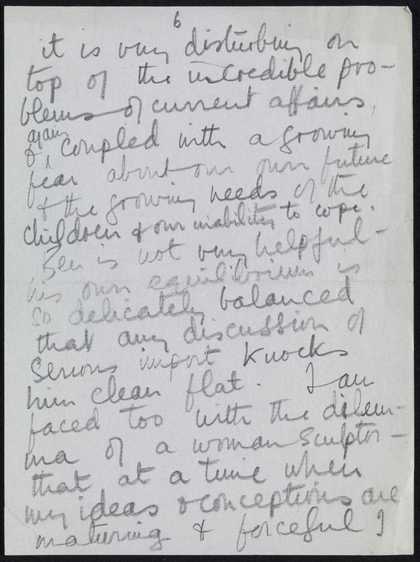 6
it is very disturbing on
top of the incredible pro-
blems of current affairs,
again
&, coupled with a growing
fear about our own future
& the growing needs of the
children & our inability to cope.
Ben is not very helpful -
his own equilibrium is
so delicately balanced
that any discussion of
serious import knocks
him clean flat. I am
faced too with the dilem-
ma of a woman sculptor -
that at a time when
my ideas & conceptions are
maturing & forceful I